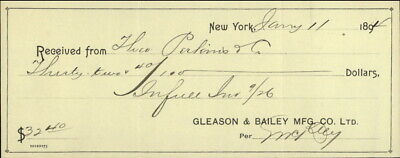 New York, Jany 11 1894
Received from Theo Perkins & Co
Thirty two 40/100 Dollars,
In full Inv 9/26
GLEASON & BAILEY MFG. CO. LTD.
$32.40
Per